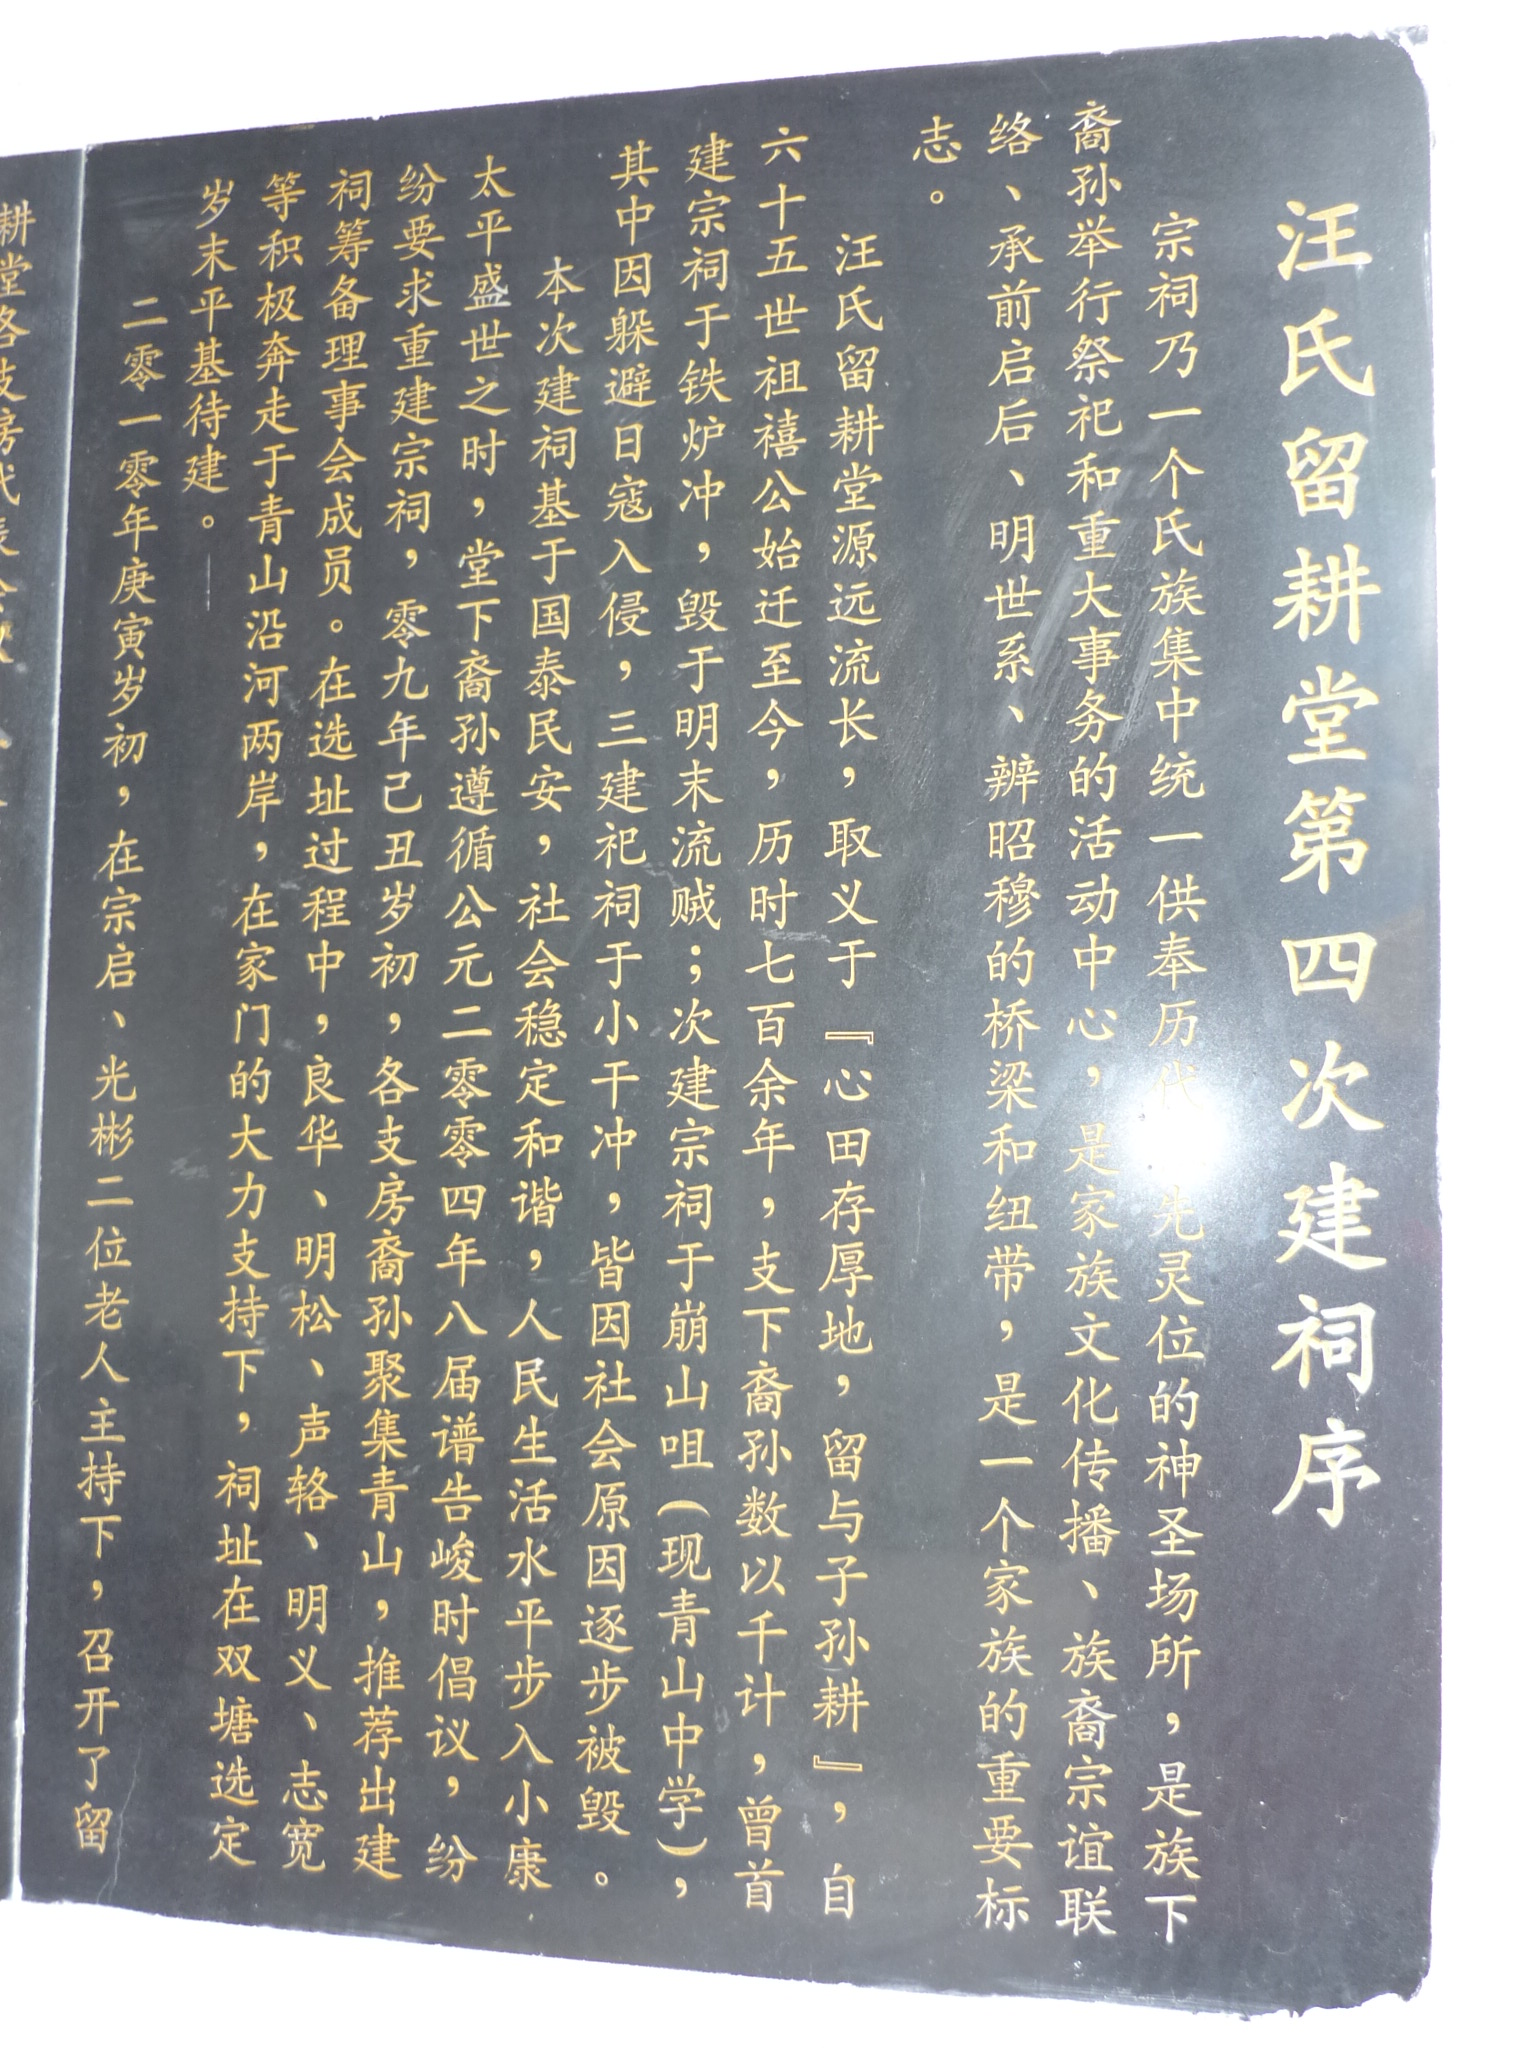 汪氏留耕堂第四次建祠序
宗祠乃一个氏族集中统一供奉历代先灵位的神圣场所，是族下
裔孙举行祭祀和重大事务的活动中心，是家族文化传播、族裔宗谊联
络、承前启后、明世系、辨昭穆的桥梁和纽带，是一个家族的重要标
志。
汪氏留耕堂源远流长，取义于『心田存厚地，留与子孙耕』，自
六十五世祖禧公始迁至今，历时七百余年，支下裔孙数以千计，曾首
建宗祠于铁炉冲，毁于明末流贼；次建宗祠于崩山咀（现青山中学），
其中因躲避日寇入侵，三建祀祠于小干冲，皆因社会原因逐步被毁。
本次建祠基于国泰民安，社会稳定和谐，人民生活水平步入小康
太平盛世之时，堂下裔孙遵循公元二零零四年八届谱告峻时倡议，纷
纷要求重建宗祠，零九年己丑岁初，各支房裔孙聚集青山，推荐出建
祠筹备理事会成员。在选址过程中，良华、明松、声辂、明义、志宽
等积极奔走于青山沿河两岸，在家门的大力支持下，祠址在双塘选定
岁末平基待建。
二零一零年庚寅岁初，在宗启、光彬二位老人主持下，召开了留
耕堂各支房代表会